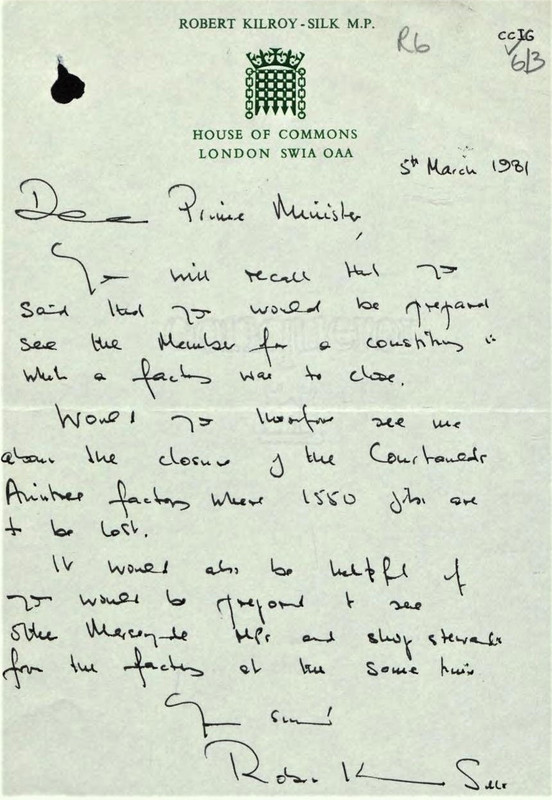 ROBERT KILROY-SILK M.P.
R6
ccIG
6/3
HOUSE OF COMMONS
LONDON SW1A 0AA
5th March 1981
Dear Prime Minister,
You will recall that you
said that you would be prepared
see the Member for a constituency in
which a factory was to close.
Would you therefore see me
about the closure of the Courtaulds
Aintree factory where 1550 jobs are
to be lost.
It would also be helpful if
you would be prepared to see
other Merseyside MPs and shop stewards
from the factory at the same time
Yours sincerely
Robert Kilroy-Silk